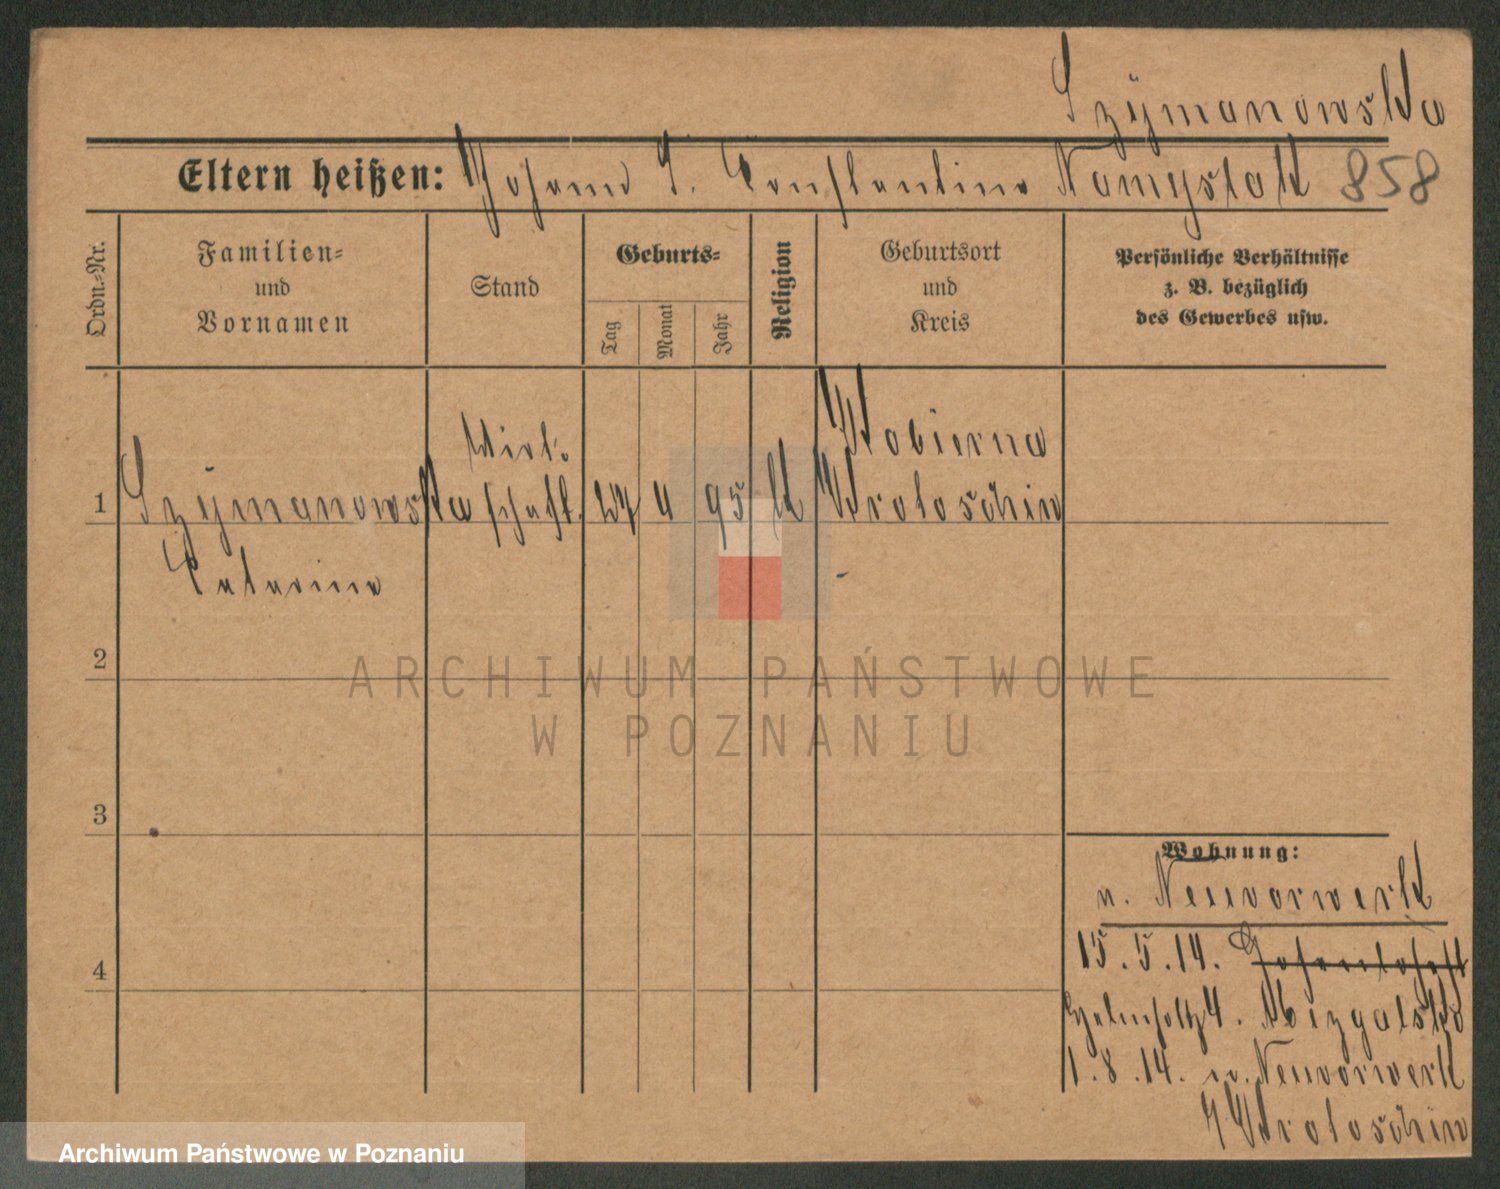 Szymanowska
Eltern heißen: Johann u. Constantina Namyslak 858
Ordn.-Nr.
Familien-
und
Vornamen
Stand
Geburts-
Tag
Monat
Jahr
Religion
Geburtsort
und
Kreis
Persönliche Verhältnisse
z. B. bezüglich
des Gewerbes usw.
1
Szymanowska
Catarina
Wirt-
schaft.
27
4
95
k
Kobierna
Krotoschin
2
3
4
Wohnung:
n. Neuvorwerk
15.5.14.
4. Mizgalski
1.8.14. n. Neuvorwerk
Krotoschin
ARCHIWUM PAŃSTWOWE
W POZNANIU
Archiwum Państwowe w Poznaniu